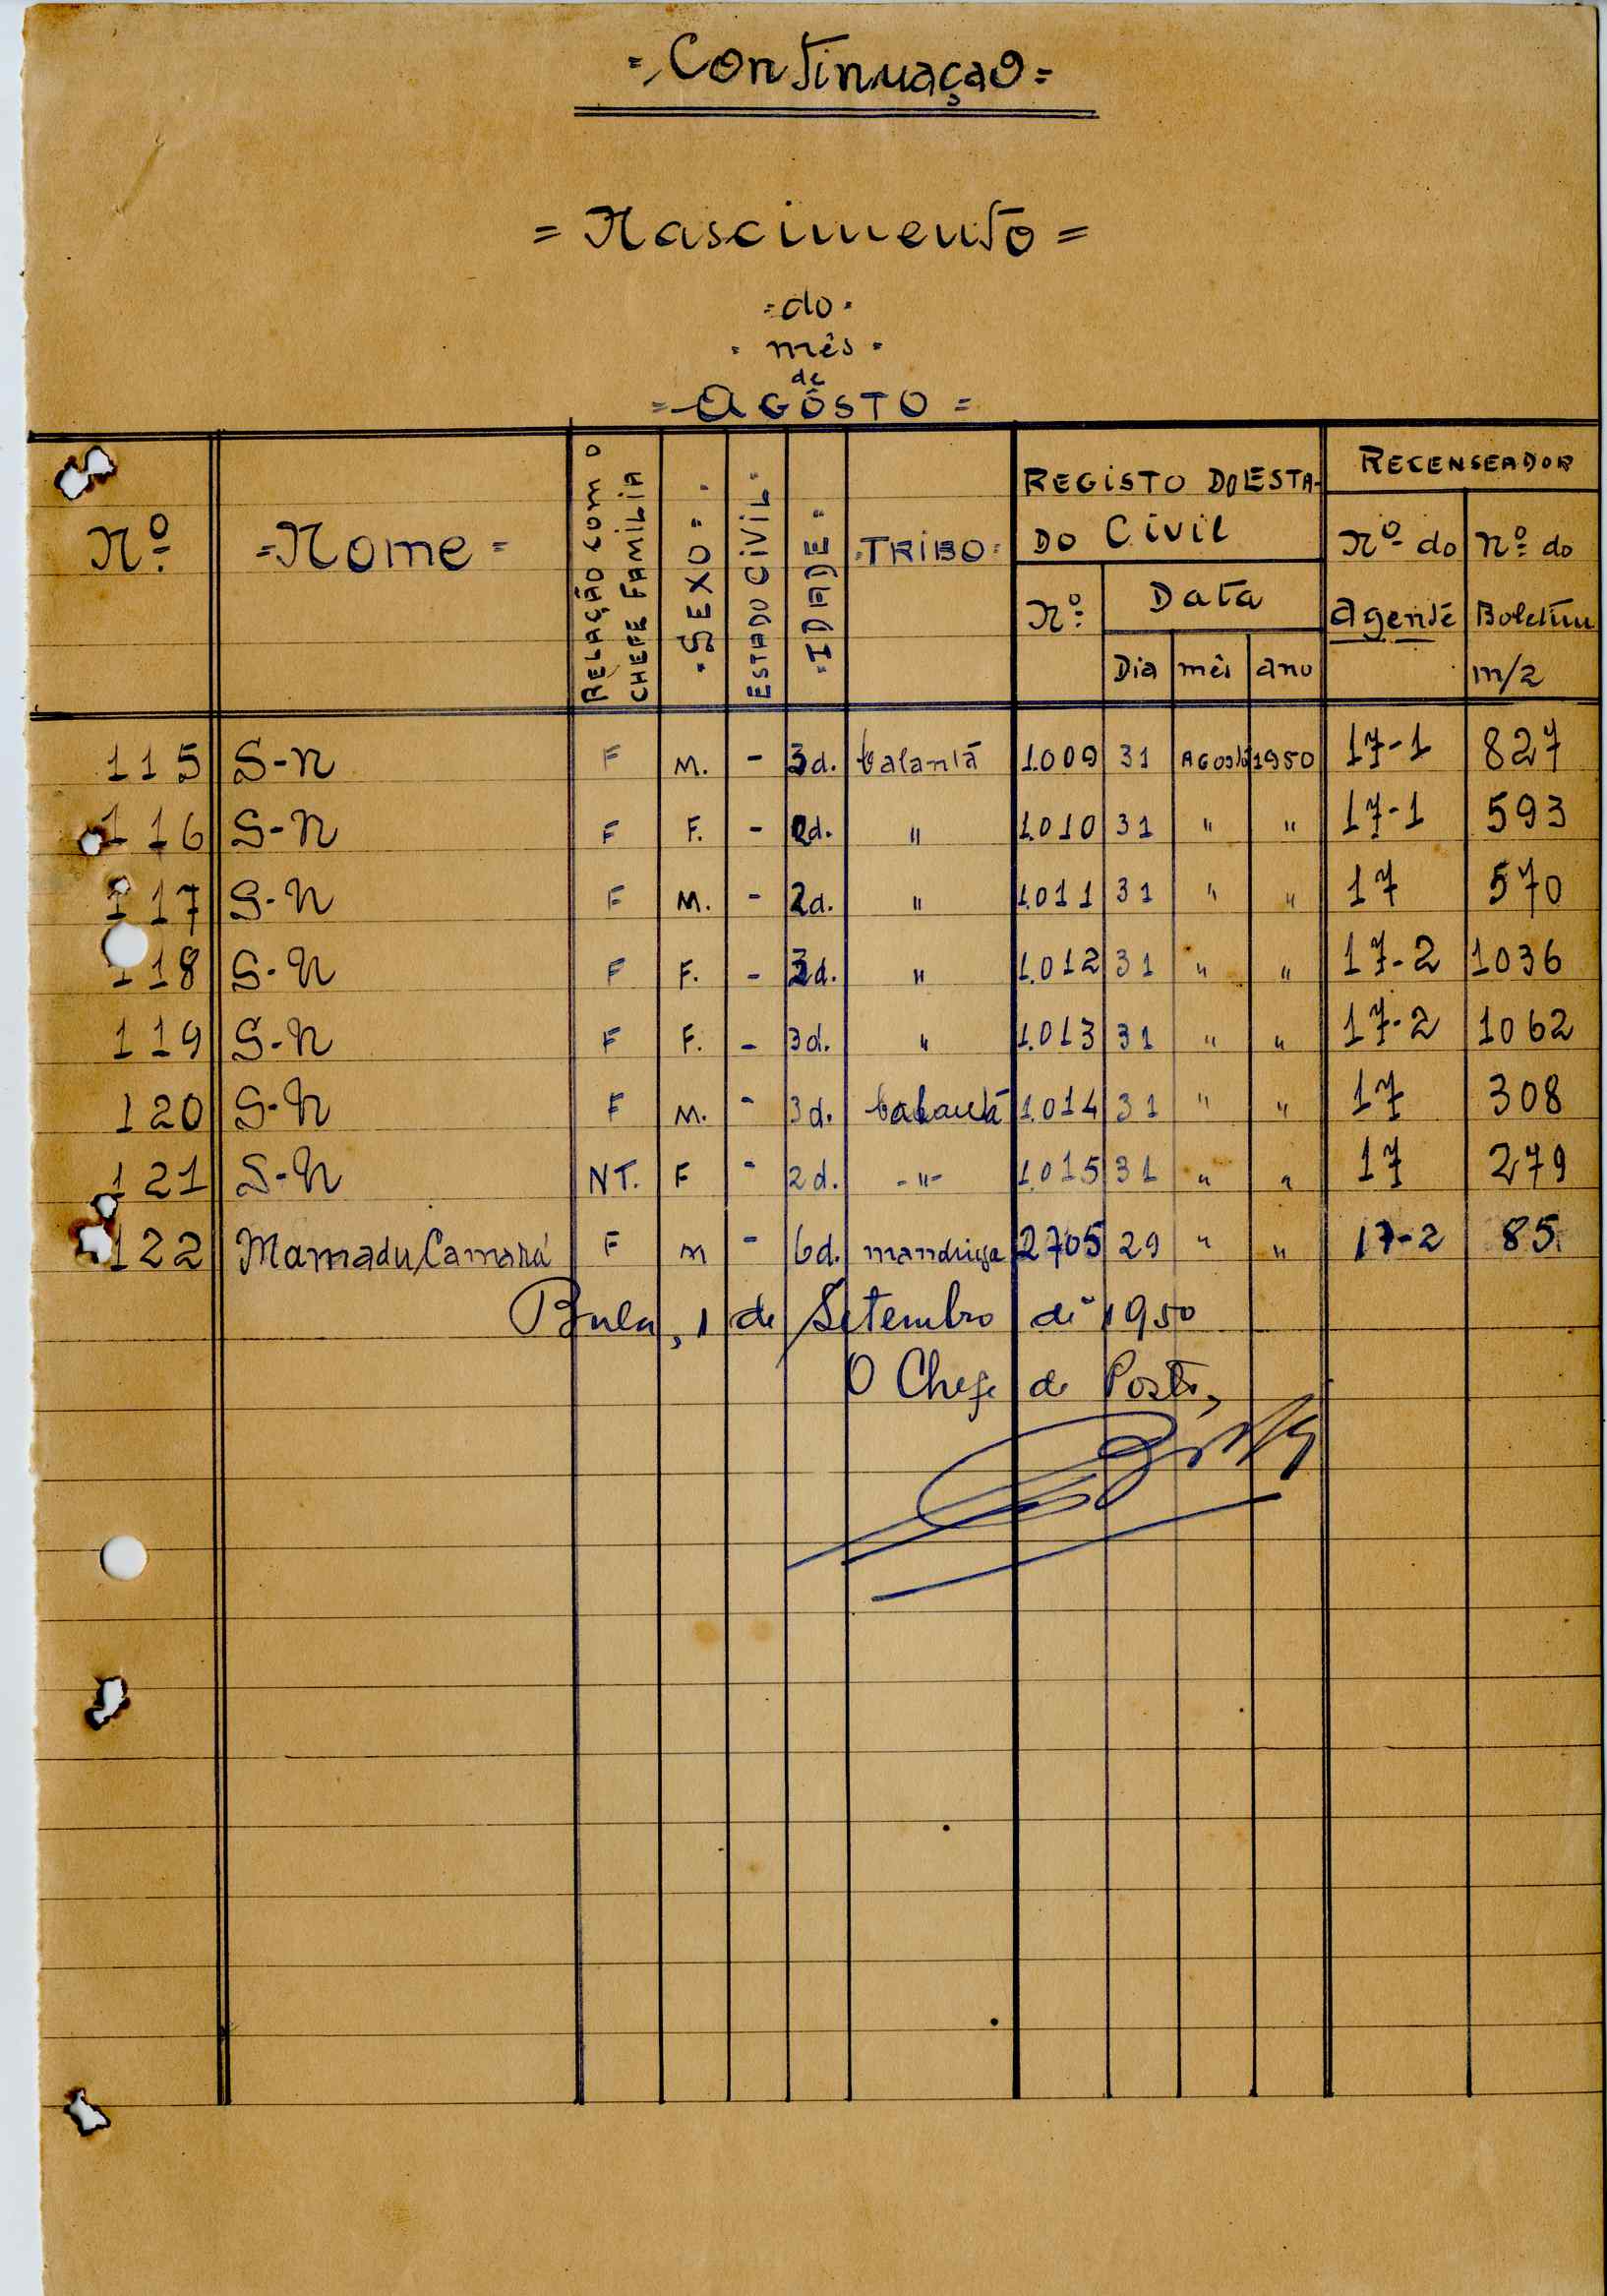 =Continuação=
=Nascimento=
=do=
=mês=
de
=AGÔSTO=
Nº =Nome= RELAÇÃO COM O CHEFE FAMILIA =SEXO= ESTADO CIVIL =IDADE= =TRIBO= REGISTO DO ESTADO CIVIL Nº Data Dia mês ano RECENSEADOR Nº do Agente Nº do Boletim m/2
115 S-N F M. - 3d. balantã 1.009 31 AGosto 1950 17-1 827
116 S-N F F. - 2d. " 1.010 31 " " 17-1 593
117 S-N F M. - 2d. " 1.011 31 " " 17 570
118 S-N F F. - 3d. " 1.012 31 " " 17-2 1036
119 S-N F F. - 3d. " 1.013 31 " " 17-2 1062
120 S-N F M. - 3d. balantã 1.014 31 " " 17 308
121 S-N NT. F - 2d. -"- 1.015 31 " " 17 279
122 Mamadu Camará F M - 6d. mandinga 2705 29 " " 17-2 85
Bula, 1 de Setembro de 1950
O Chefe de Posto,